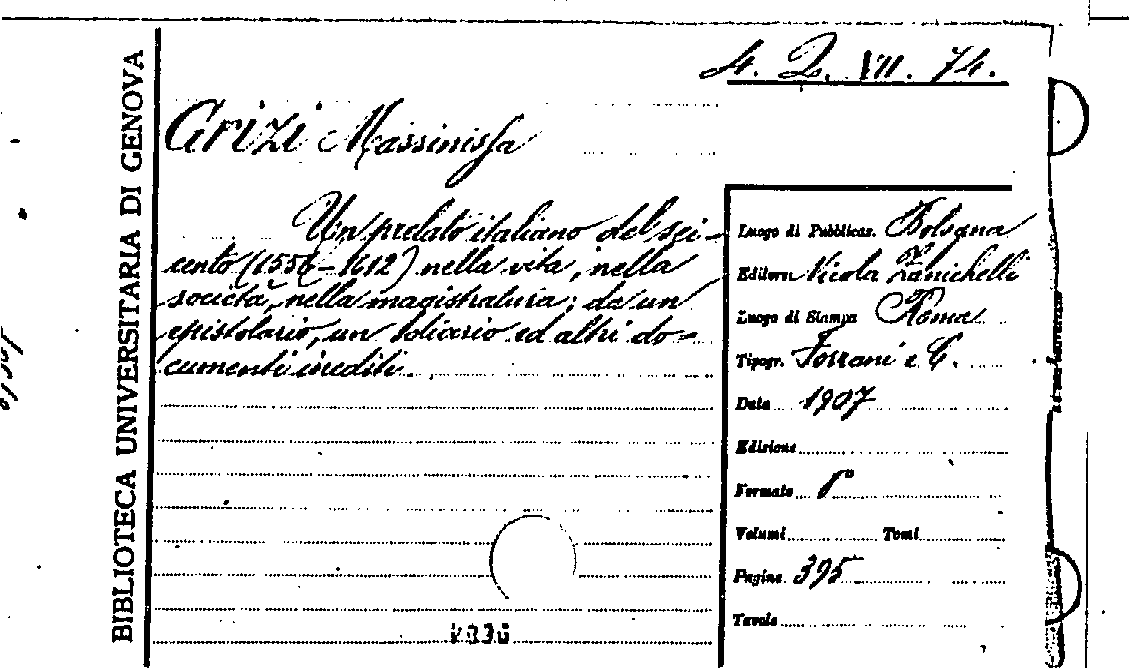 BIBLIOTECA UNIVERSITARIA DI GENOVA
4. Q. VII. 74.
Grizi Massinissa
Un prelato italiano del sei-
cento (1556-1612) nella vita, nella
società, nella magistratura; da un
epistolario, un diario ed altri do-
cumenti inediti.
Luogo di Pubblicaz. Bologna
Editore Nicola Zanichelli
Luogo di Stampa Roma
Tipogr. Forzani e C.
Data 1907
Edizione
Formato 8°
Volumi Tomi
Pagine 395
Tavole